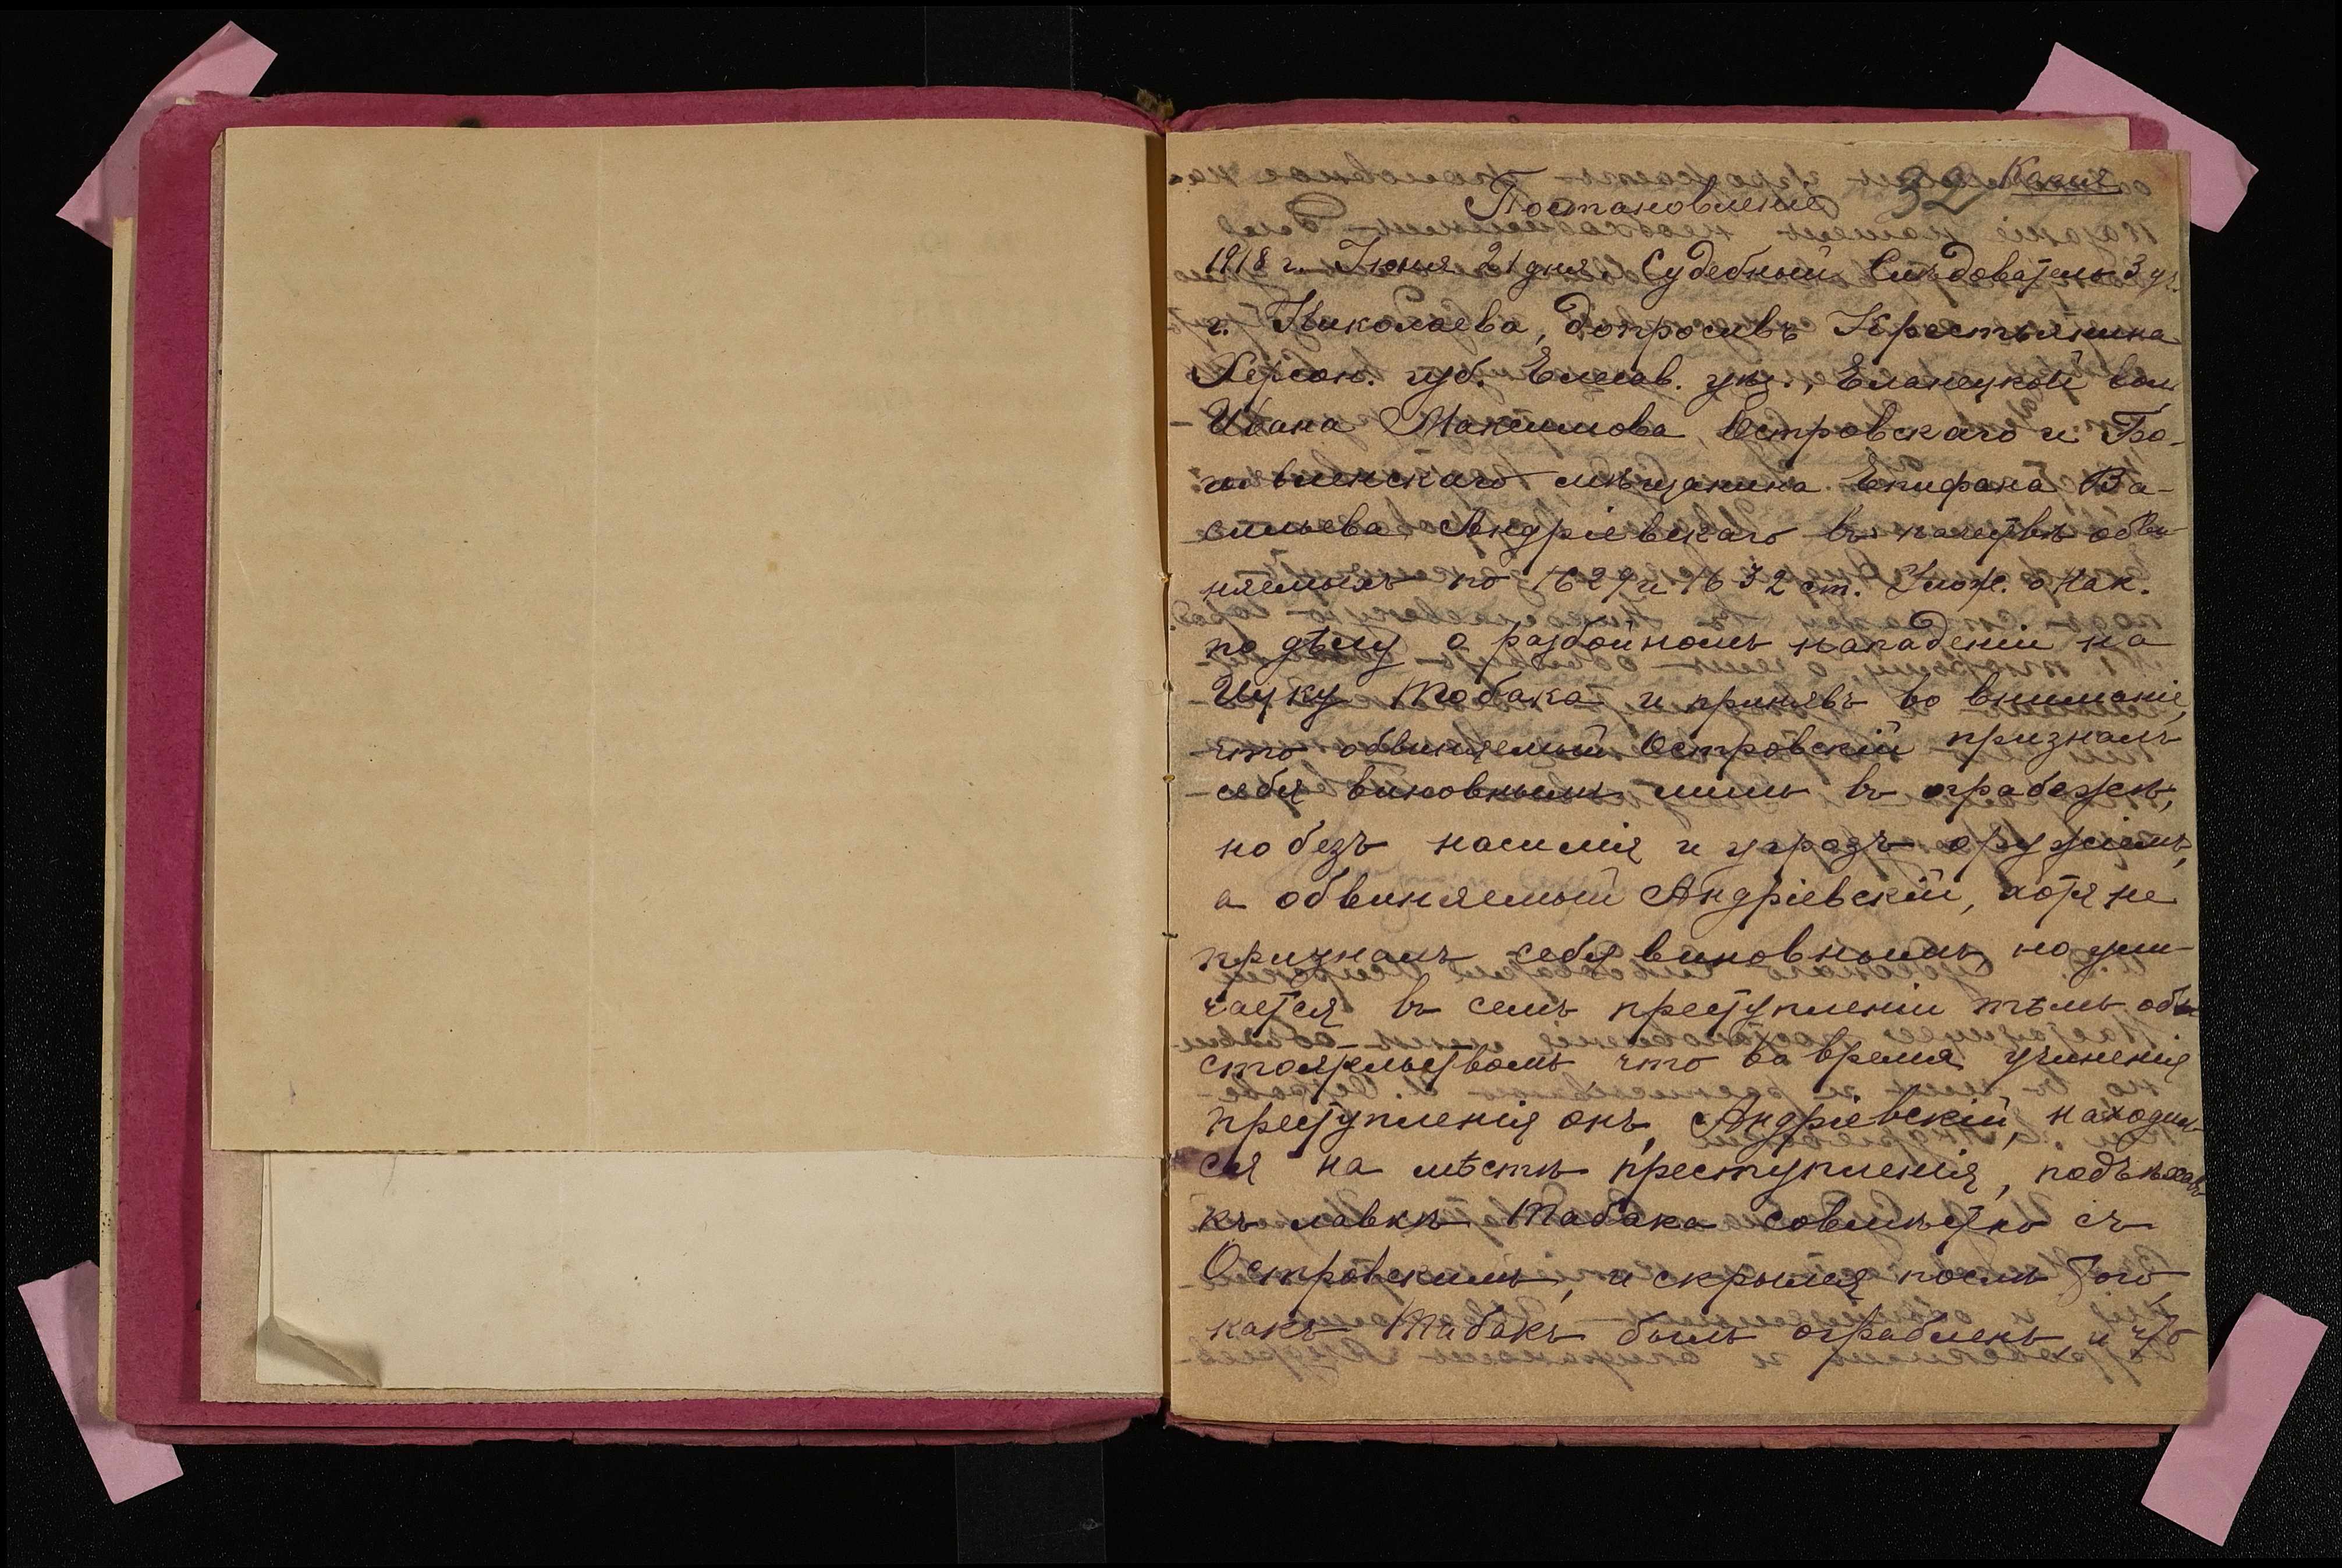 32 Копія
Постановленіе
1918 г. Іюня 21 дня. Судебный Слѣдователь 3 уч.
г. Николаева, допросивъ Крестьянина
Херсон. губ. Елисав. уѣз., Еланецкой вол.
Ивана Максимова Островскаго и Бо-
гоявленскаго мѣщанина Епифана Ва-
сильева Андріевскаго въ качествѣ обви-
няемыхъ по 1629 и 1632 ст. Улож. о Нак.
по дѣлу о разбойномъ нападеніи на
Ицку Табака и принявъ во вниманіе,
что обвиняемый Островскій призналъ
себя виновнымъ лишь въ ограбежѣ,
но безъ насилія и угрозъ оружіемъ,
а обвиняемый Андріевскій, хотя не
призналъ себя виновнымъ, но ули-
чается въ семъ преступленіи тѣмъ об-
стоятельствомъ что во время учиненія
преступленія онъ, Андріевскій, находил-
ся на мѣстѣ преступленія, подъѣхавъ
къ лавкѣ Табака совмѣстно съ
Островскимъ, и скрылся послѣ того,
какъ Табакъ былъ ограбленъ, и что